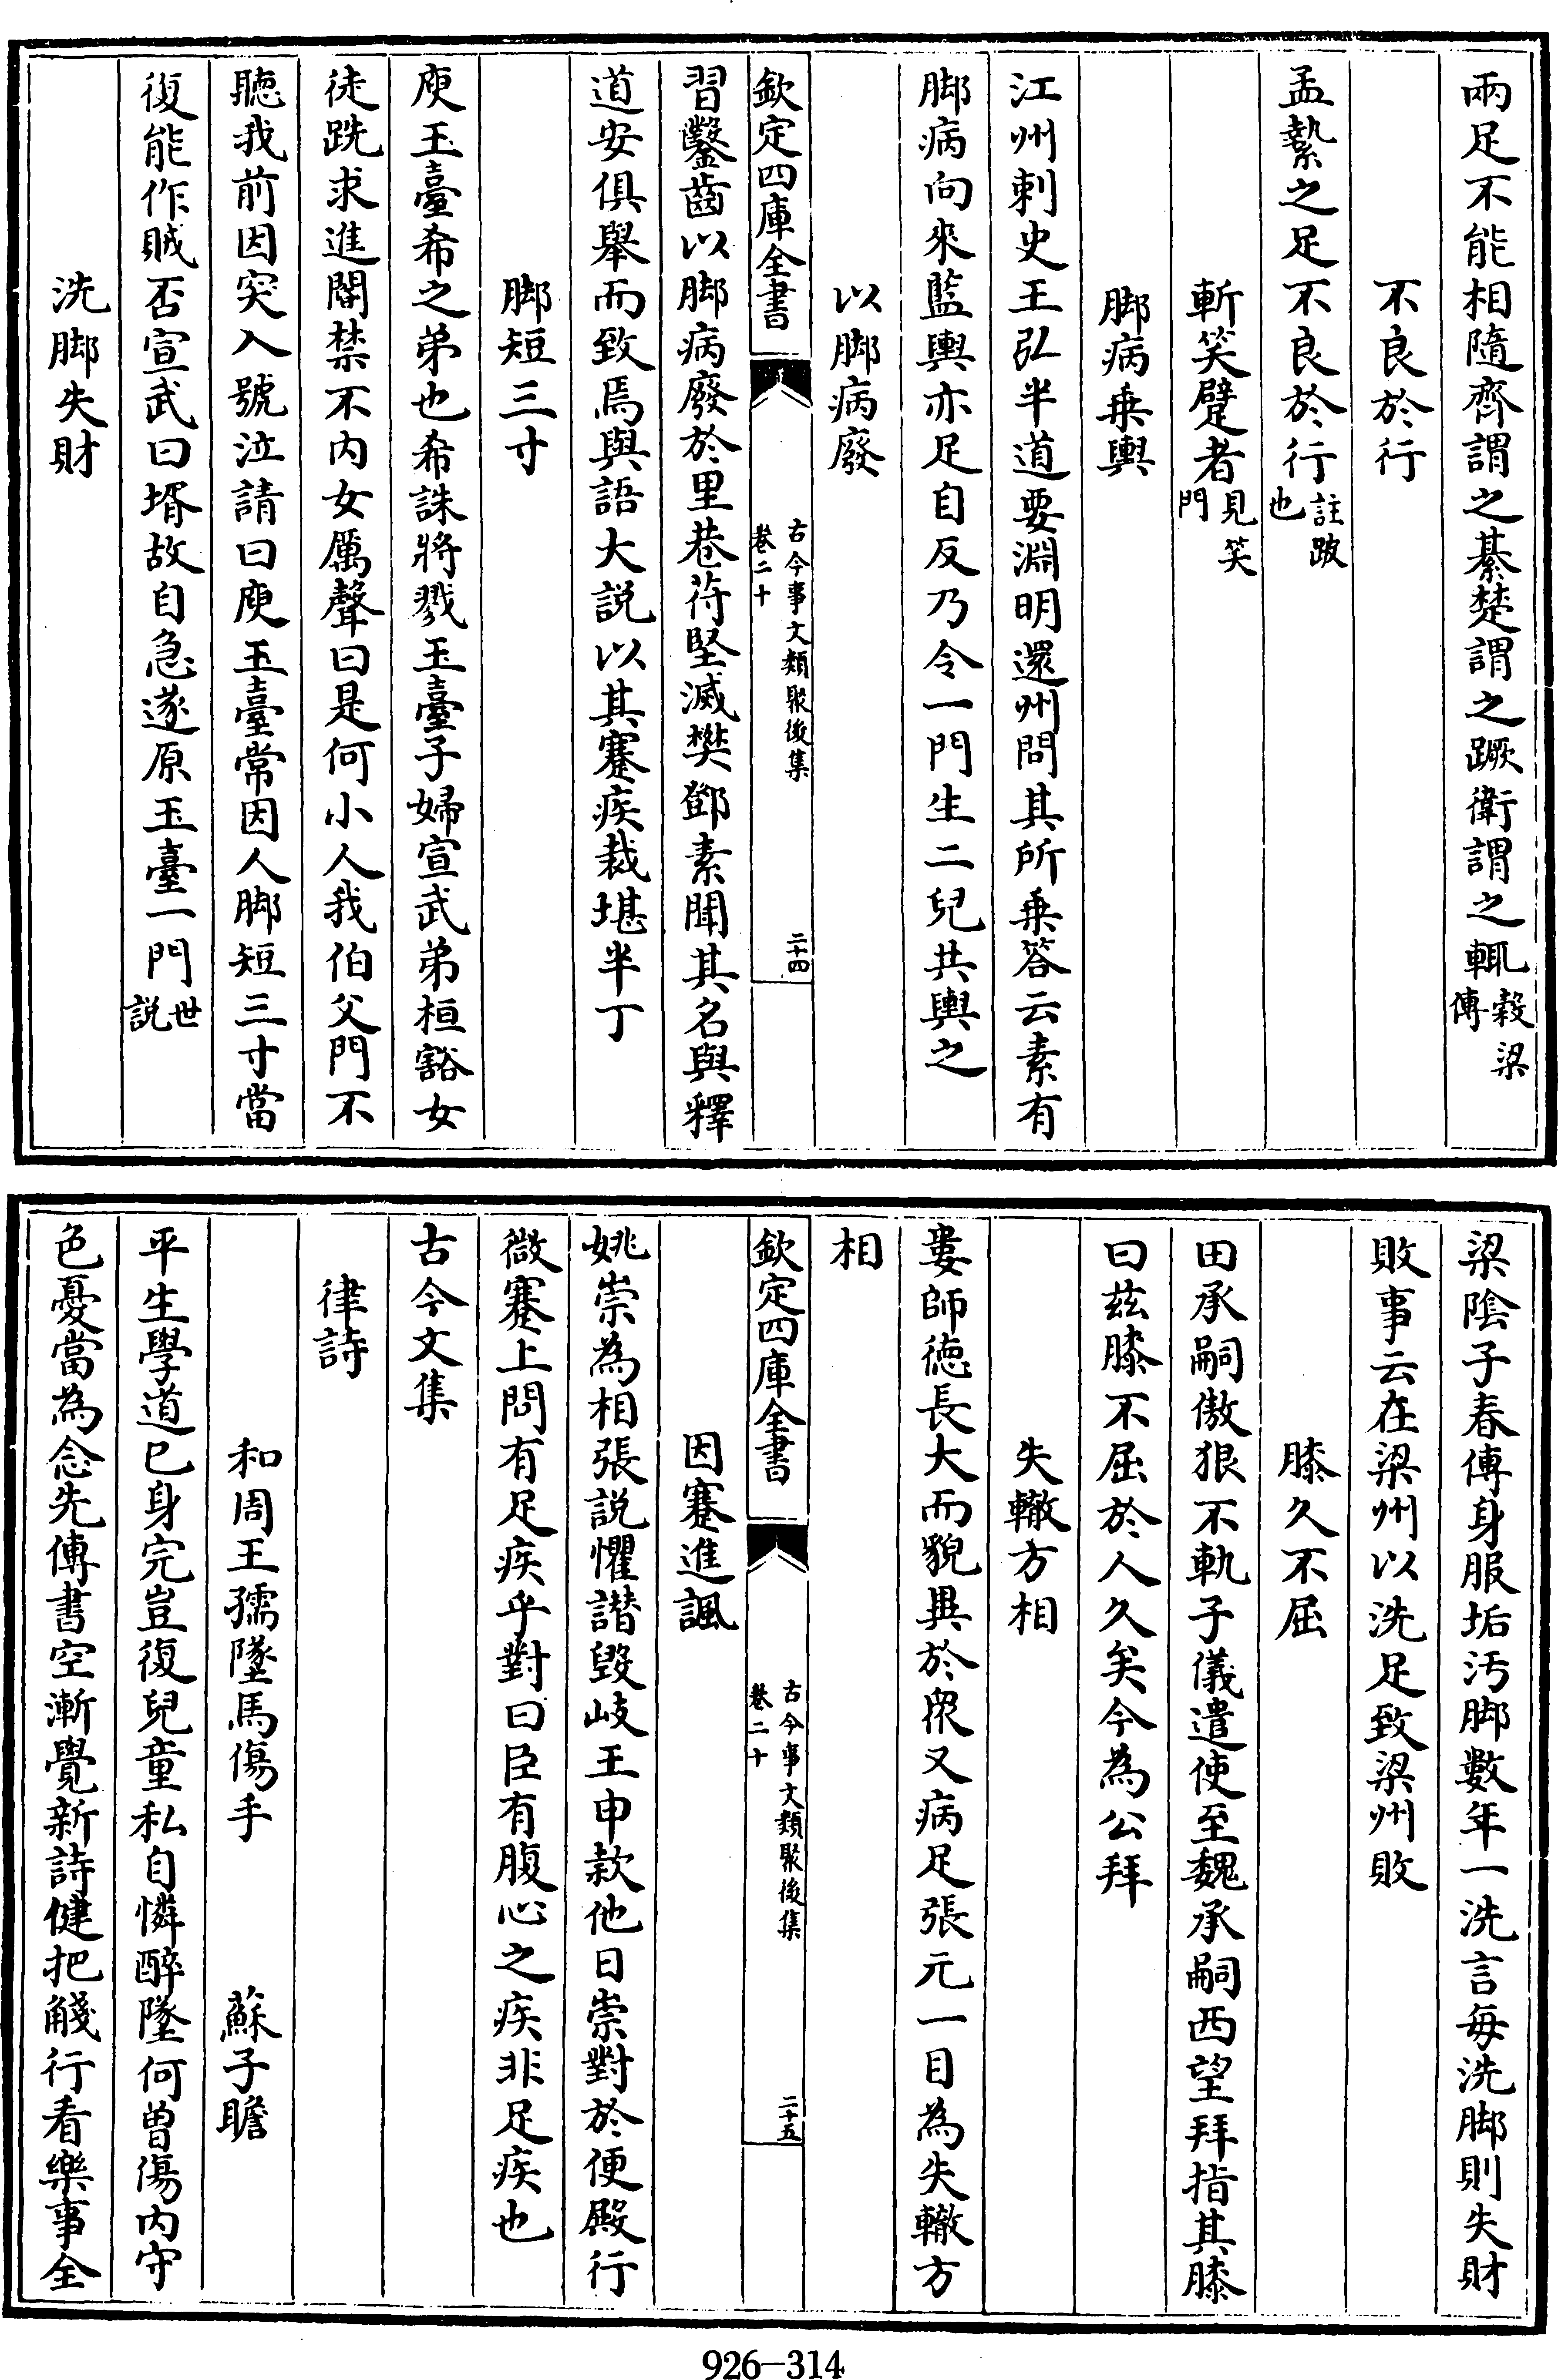 兩足不能相隨齊謂之綦楚謂之踙衛謂之輒穀梁傳
不良於行
孟縶之足不良於行註跛也
斬笑躄者見笑門
脚病乗輿
江州刺史王弘半道要淵明還州問其所乗答云素有
脚病向來籃輿亦足自反乃令一門生二兒共輿之
以脚病廢
欽定四庫全書
古今事文類聚後集
卷二十
二十四
習鑿齒以脚病廢於里巷苻堅滅樊鄧素聞其名與釋
道安俱舉而致焉與語大説以其蹇疾裁堪半丁
脚短三寸
庾玉臺希之弟也希誅將戮玉臺子婦宣武弟桓豁女
徒跣求進閽禁不內女厲聲曰是何小人我伯父門不
聽我前因突入號泣請曰庾玉臺常因人脚短三寸當
復能作賊否宣武曰壻故自急遂原玉臺一門世説
洗脚失財
梁陰子春傳身服垢汚脚數年一洗言每洗脚則失財
敗事云在梁州以洗足致梁州敗
膝久不屈
田承嗣傲狠不軌子儀遣使至魏承嗣西望拜指其膝
曰兹膝不屈於人久矣今為公拜
失轍方相
婁師徳長大而貌異於衆又病足張元一目為失轍方
相
欽定四庫全書
古今事文類聚後集
卷二十
二十五
因蹇進諷
姚崇為相張説懼譖毀岐王申款他日崇對於便殿行
微蹇上問有足疾乎對曰臣有腹心之疾非足疾也
古今文集
律詩
和周王孺墜馬傷手　蘇子瞻
平生學道已身完豈復兒童私自憐醉墜何曽傷內守
色憂當為念先傳書空漸覺新詩健把觴行看樂事全
926-314